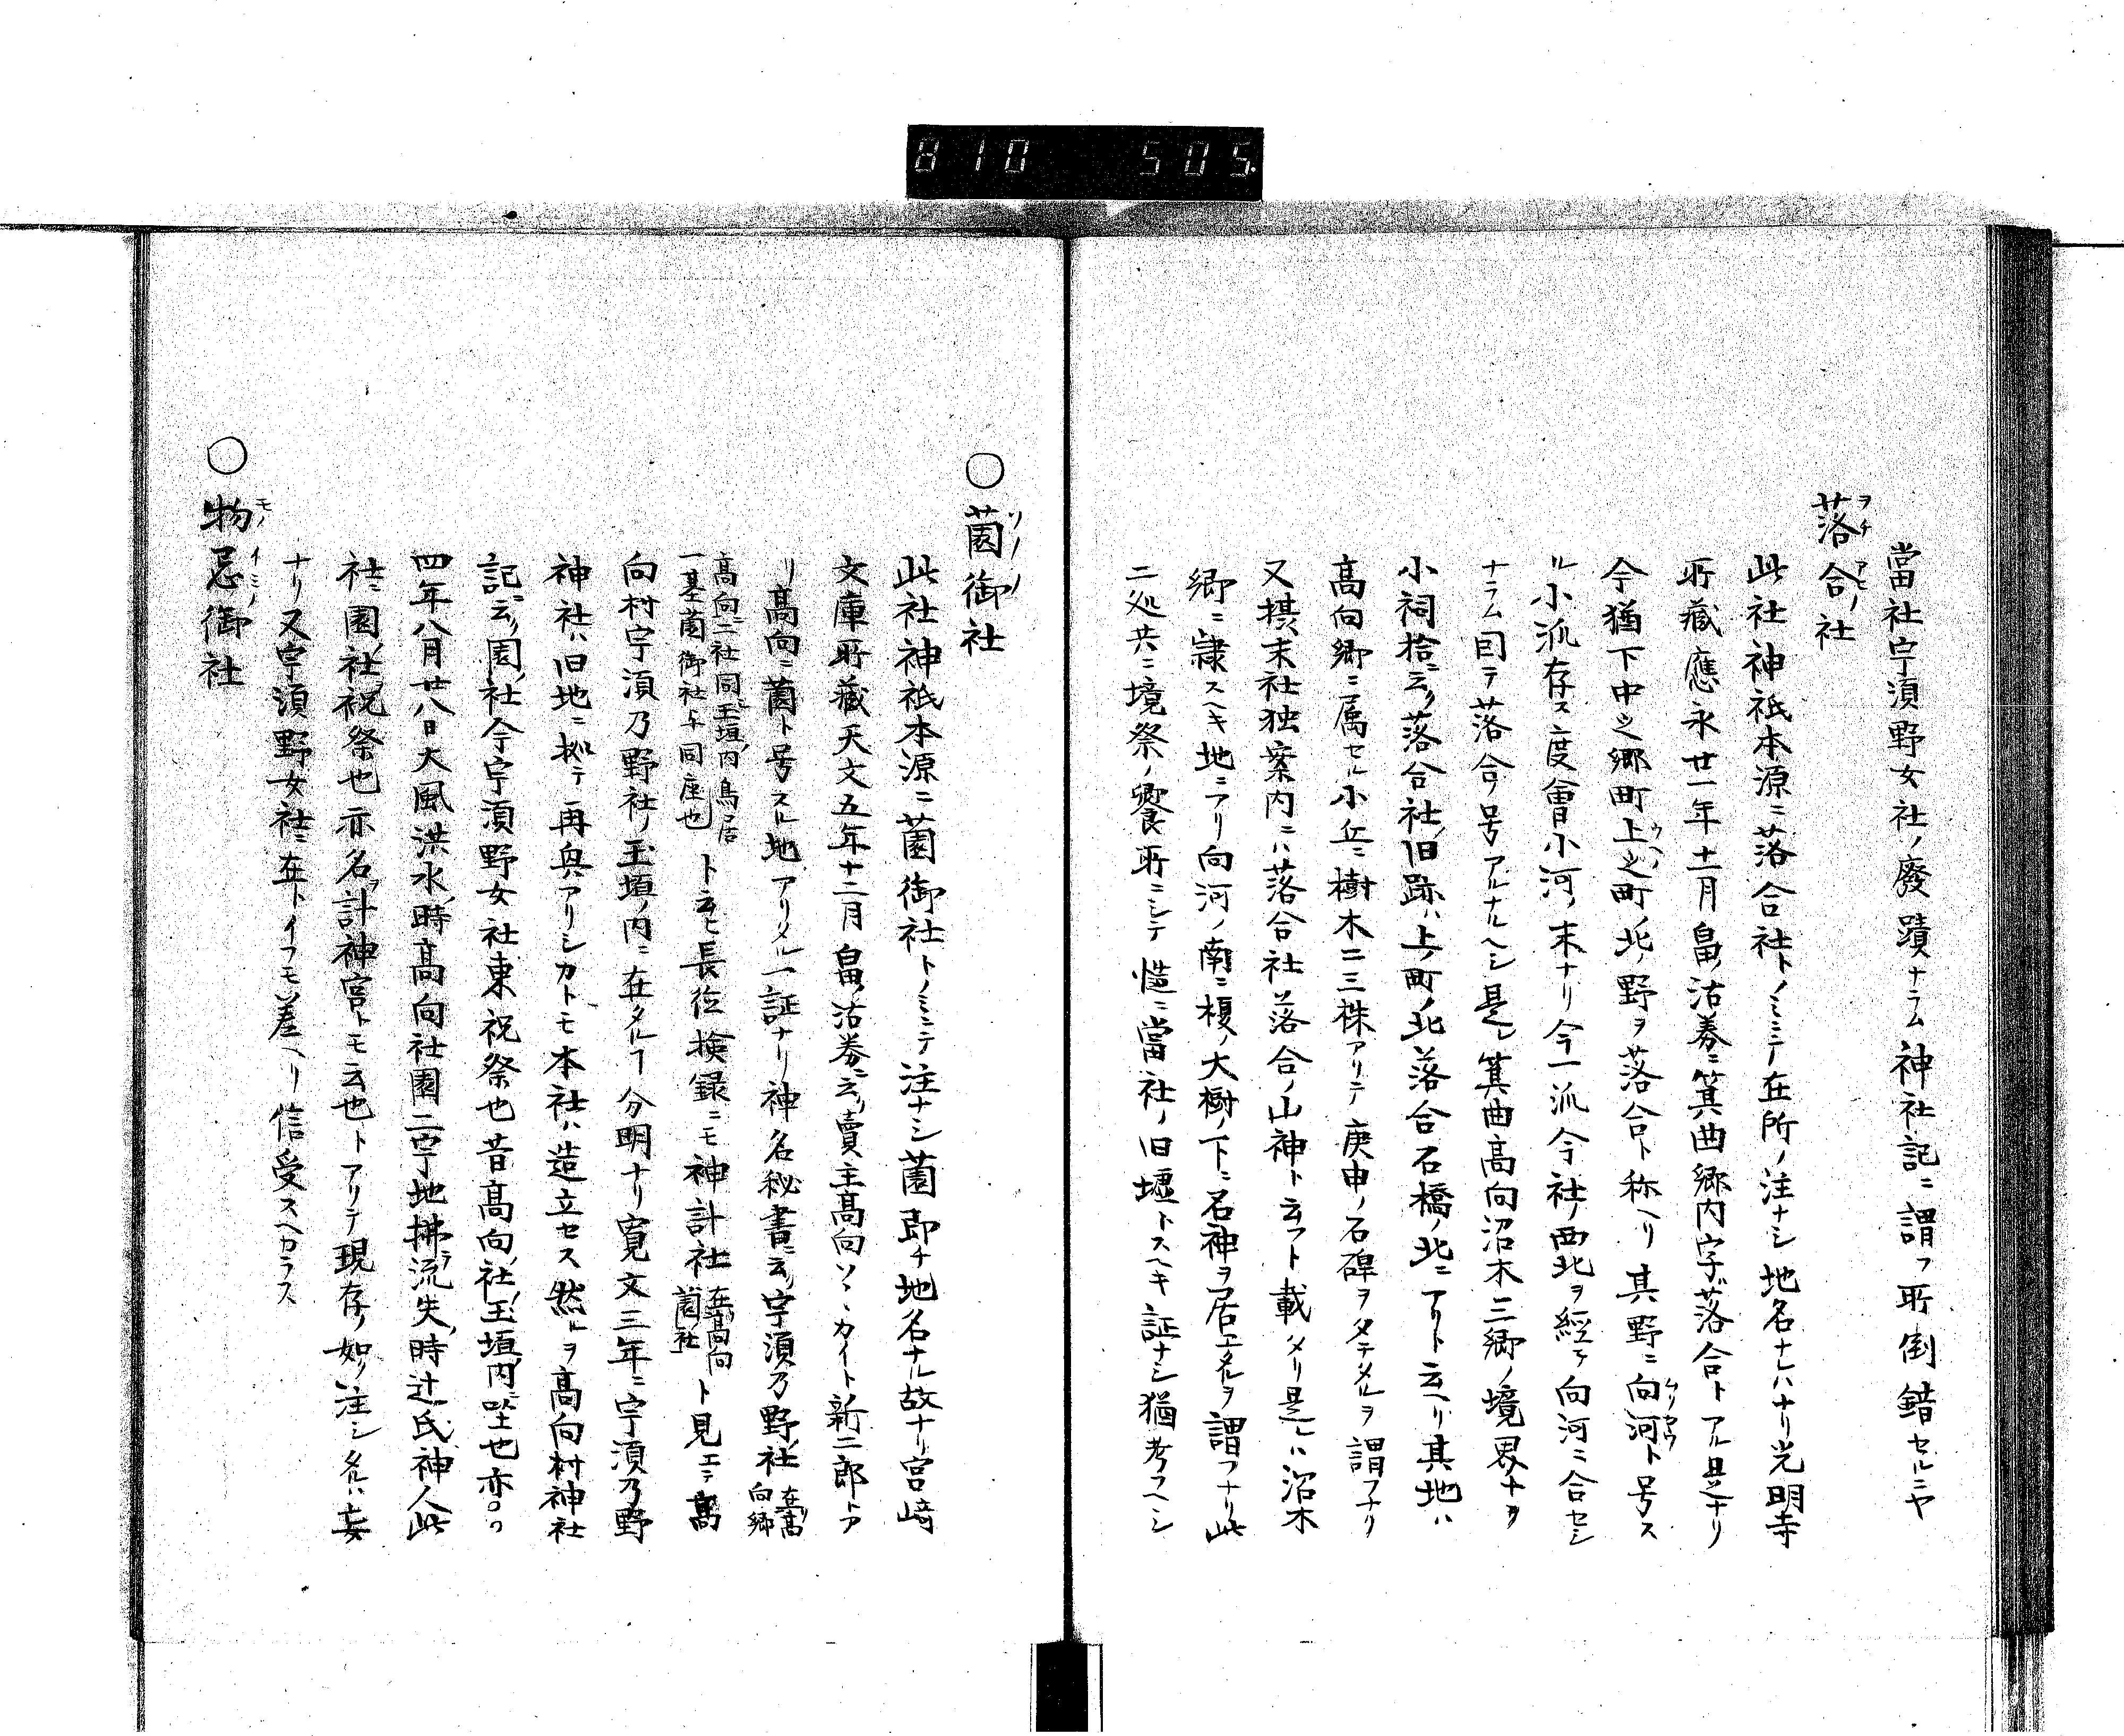 810 505.
當社宇須野女社ノ廢蹟ナラム神社記ニ謂フ所倒錯セルニヤ
落合社
ヲチアヒノ
此社神祇本源ニ落合社トノミニテ在所ノ注ナシ地名ナレハナリ光明寺
所蔵應永廿一年十一月畠ノ沽券ニ箕曲郷内字落合トアル是ナリ
今猶下中之郷町上之町ノ北ノ野ヲ落合ト称ヘリ其野ニ向河ト号ス
ル小流存ス度會小河ノ末ナリ今一流今社ノ西北ヲ經テ向河ニ合セシ
ナラム因テ落合ノ号アルナルヘシ是レ箕曲高向沼木三郷ノ境界ナリ
小祠拾ニ云ク落合社ノ旧跡ハ上ノ町ノ北落合石橋ノ北ニアリト云ヘリ其地ハ
高向郷ニ属セル小丘ニ樹木二三株アリテ庚申ノ石碑ヲタテタルヲ謂フナリ
又摂末社独案内ニハ落合社ハ落合ノ山神ト云フト載タリ是レハ沼木
郷ニ隷スヘキ地ニアリ向河ノ南ニ榎ノ大樹ノ下ニ石神ヲ居エタルヲ謂フナリ此
二処共ニ境祭ノ饗所ニシテ慥ニ當社ノ旧墟トスヘキ証ナシ猶考フヘシ
○薗御社
ソノノ
此社神祇本源ニ薗御社トノミニテ注ナシ薗即チ地名ナル故ナリ宮﨑
文庫所蔵天文五年十二月畠ノ沽券ニ云ク賣主高向ソノカイト新二郎トア
リ高向ニ薗ト号スル地アリタル一証ナリ神名秘書ニ云ク宇須乃野社在高向郷
高向ニ二社同玉垣ノ内鳥居一基薗御社与同座也ト云ヒ長徳検録ニモ神計社在高向薗社ト見エテ高
向村宇須乃野社ノ玉垣ノ内ニ在タルヿ分明ナリ寛文三年ニ宇須乃野
神社ハ旧地ニ拠テ再興アリシカトモ本社ハ造立セス然ルヲ高向村神社
記ニ云ク園ノ社今宇須野女社東祝祭也昔高向ノ社玉垣内ニ坐也亦
四年八月廿八日大風洪水ノ時高向社園二宇地拂テ流失ノ時辻氏神人此
社ニ園ノ社祝祭也亦名ヲ計神宮トモ云也トアリテ現存ノ如ク注シタルハ妄
ナリ又宇須野女社ニ在トイフモ差ヘリ信受スヘカラス
○物忌御社
モノイミノ